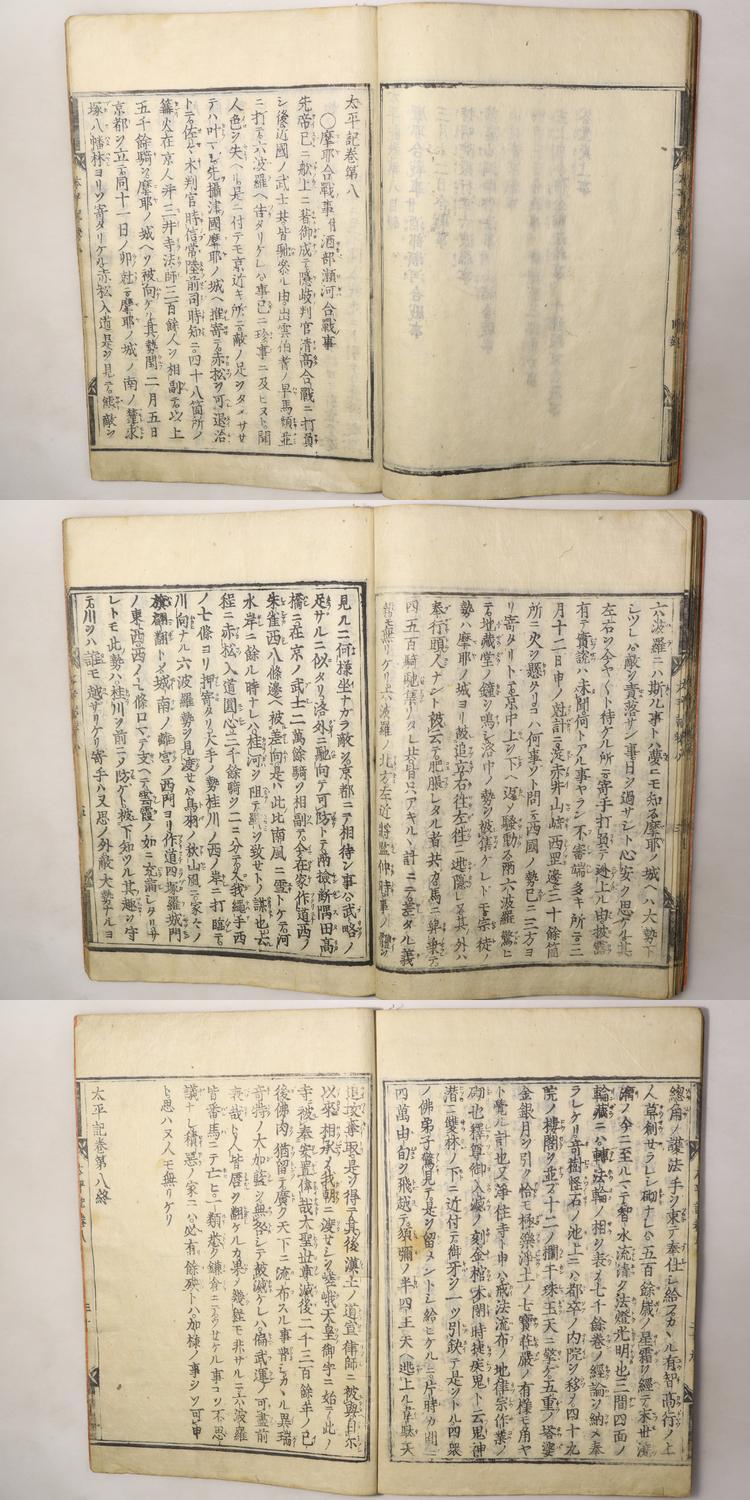 太平記巻第八
○摩耶合戰事付酒部瀬河合戰事
先帝已ニ舩上ニ著御成テ隱岐判官清高合戰ニ打負
シ後近國ノ武士共皆馳參ル由出雲伯耆ノ早馬頻並
ニ打テ六波羅ヘ告タリケレハ事已ニ珍事ニ及ヒヌト聞
人色ヲ失ヘリ是ニ付テモ京近キ所ニ敵ノ足ヲタメサセ
テハ叶マシ先攝津國摩耶ノ城ヘ推寄テ赤松ヲ可退治
トテ佐々木判官時信常陸前司時知ニ四十八箇所ノ
篝火在京人并三井寺法師三百餘人ヲ相副テ以上
五千餘騎ヲ摩耶ノ城ヘソ被向ケル其勢閏二月五日
京都ヲ立テ同十一日ノ卯尅ニ摩耶ノ城ノ南ノ麓求
塚八幡林ヨリソ寄タリケル赤松入道是ヲ見テ態敵ヲ
六波羅ニハ斯ル事トハ夢ニモ知ラ摩耶ノ城ヘハ大勢下
シツレハ敵ヲ責落サン事日ヲ過サシト心安ク思ケル其
左右ヲ今ヤ〱ト待ケル所ニ寄手打負テ逃上ル由披露
有テ實説ハ未聞何トアル事ヤラン不審端多キ所ニ三
月十二日申ノ尅計ニ淀赤井山崎西岡邊三十餘箇
所ニ火ヲ懸タリコハ何事ソト問ニ西國ノ勢已ニ三方ヨ
リ寄タリトテ京中上ヲ下ヘ返メ騷動ス兩六波羅驚ヒ
テ地藏堂ノ鐘ヲ鳴シ洛中ノ勢ヲ被集ケレトモ宗徒ノ
勢ハ摩耶ノ城ヨリ被追立右往左往ニ逃隱レヌ其外ハ
奉行頭人ナント被云テ肥脹レタル者共カ馬ニ舁乘テ
四五百騎馳集リタレ共皆只アキレ計ニテ差タル義
勢モ無リケリ六波羅ノ北方左近將監仲時事ノ體ヲ
見ルニ何樣坐ナカラ敵ヲ京都ニテ相待ン事ハ武略ノ
足サルニ似タリ洛外ニ馳向テ可防トテ兩檢断隅田高
橋ニ在京ノ武士二萬餘騎ヲ相副テ今在家作道西ノ
朱雀西八條邊ヘ被差向是ハ此比南風ニ雪トケテ河
水岸ニ餘ル時ナレハ桂河ヲ阻テ軍ヲ致セトノ謀也去
程ニ赤松入道圓心三千餘騎ヲ二ニ分テ久我繩手西
ノ七條ヨリ押寄タリ大手ノ勢桂川ノ西ノ岸ニ打臨テ
川向ナル六波羅勢ヲ見渡セハ鳥羽ノ秋山風ニ家々ノ
旗翩翻トメ城南ノ離宮ノ西門ヨリ作道四塚羅城門
ノ東西西ノ七條口マテ支ヘテ雲霞ノ如ニ充滿シタリサ
レトモ此勢ハ桂川ヲ前ニノ防ケト被下知ツル其趣ヲ守
テ川ヲハ誰モ越サリケリ寄手ハ又思ノ外敵大勢ナルヨ
總角ノ護法手ヲ束テ奉仕シ給フカヽル有智高行ノ上
人草創セラレシ砌ナレハ五百餘歳ノ星霜ヲ經テ末世澆
漓ノ今ニ至ルマテ智水流清ク法燈光明也三間四面ノ
輪藏ニハ轉法輪ノ相ヲ表メ七千餘卷ノ經論ヲ納メ奉
ラレケリ奇樹怪石ノ池上ニハ都卒ノ内院ヲ移メ四十九
院ノ樓閣ヲ並フ十二ノ欄干珠玉天ニ擎ケ五重ノ塔婆
金銀月ヲ引ク恰モ極樂淨土ノ七寶莊嚴ノ有樣モ角ヤ
ト覺ル計也又淨住寺ト申ハ戒法流布ノ地律宗作業ノ
砌也釋尊御入滅ノ刻金棺未閉時捷疾鬼ト云鬼神
潜ニ雙林ノ下ニ近付テ御牙ヲ一ツ引欠テ是ヲトル四衆
ノ佛弟子驚見テ是ヲ留メントシ給ヒケルニ片時カ間ニ
四萬由旬ヲ飛越テ須彌ノ半四王天ヘ逃上ル韋駄天
追攻奪取是ヲ得テ其後漢土ノ道宣律師ニ被與自尓
以來相承メ我朝ニ渡セシヲ嵯峨天皇御宇ニ始テ此ノ
寺ニ被奉案置偉哉大聖世尊滅後二千三百餘年ノ已
後佛肉猶留テ廣ク天下ニ流布スル事普シカヽル異瑞
奇特ノ大加藍ヲ無咎メ被滅ケルハ偏武運ノ可盡前
表哉ト人皆唇ヲ翻ケルカ果メ幾程モ非サルニ六波羅
皆番馬ニテ亡ヒ一類悉ク鎌倉ニテウセケル事コソ不思
議ナレ積惡ノ家ニハ必有餘殃トハ加樣ノ事ヲソ可申
ト思ハヌ人モ無リケリ
太平記巻第八終